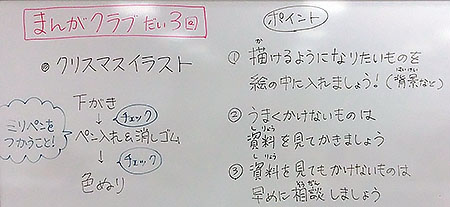 まんがクラブだい3回
⦿クリスマスイラスト
下がき
↓ チェック
ミリペンを
つかうこと!
ペン入れ&消しゴム
↓ チェック
色ぬり
ポイント
① 描けるようになりたいものを
絵の中に入れましょう!(背景など)
② うまくかけないものは
資料を見てかきましょう
③ 資料を見てもかけないものは
早めに相談しましょう